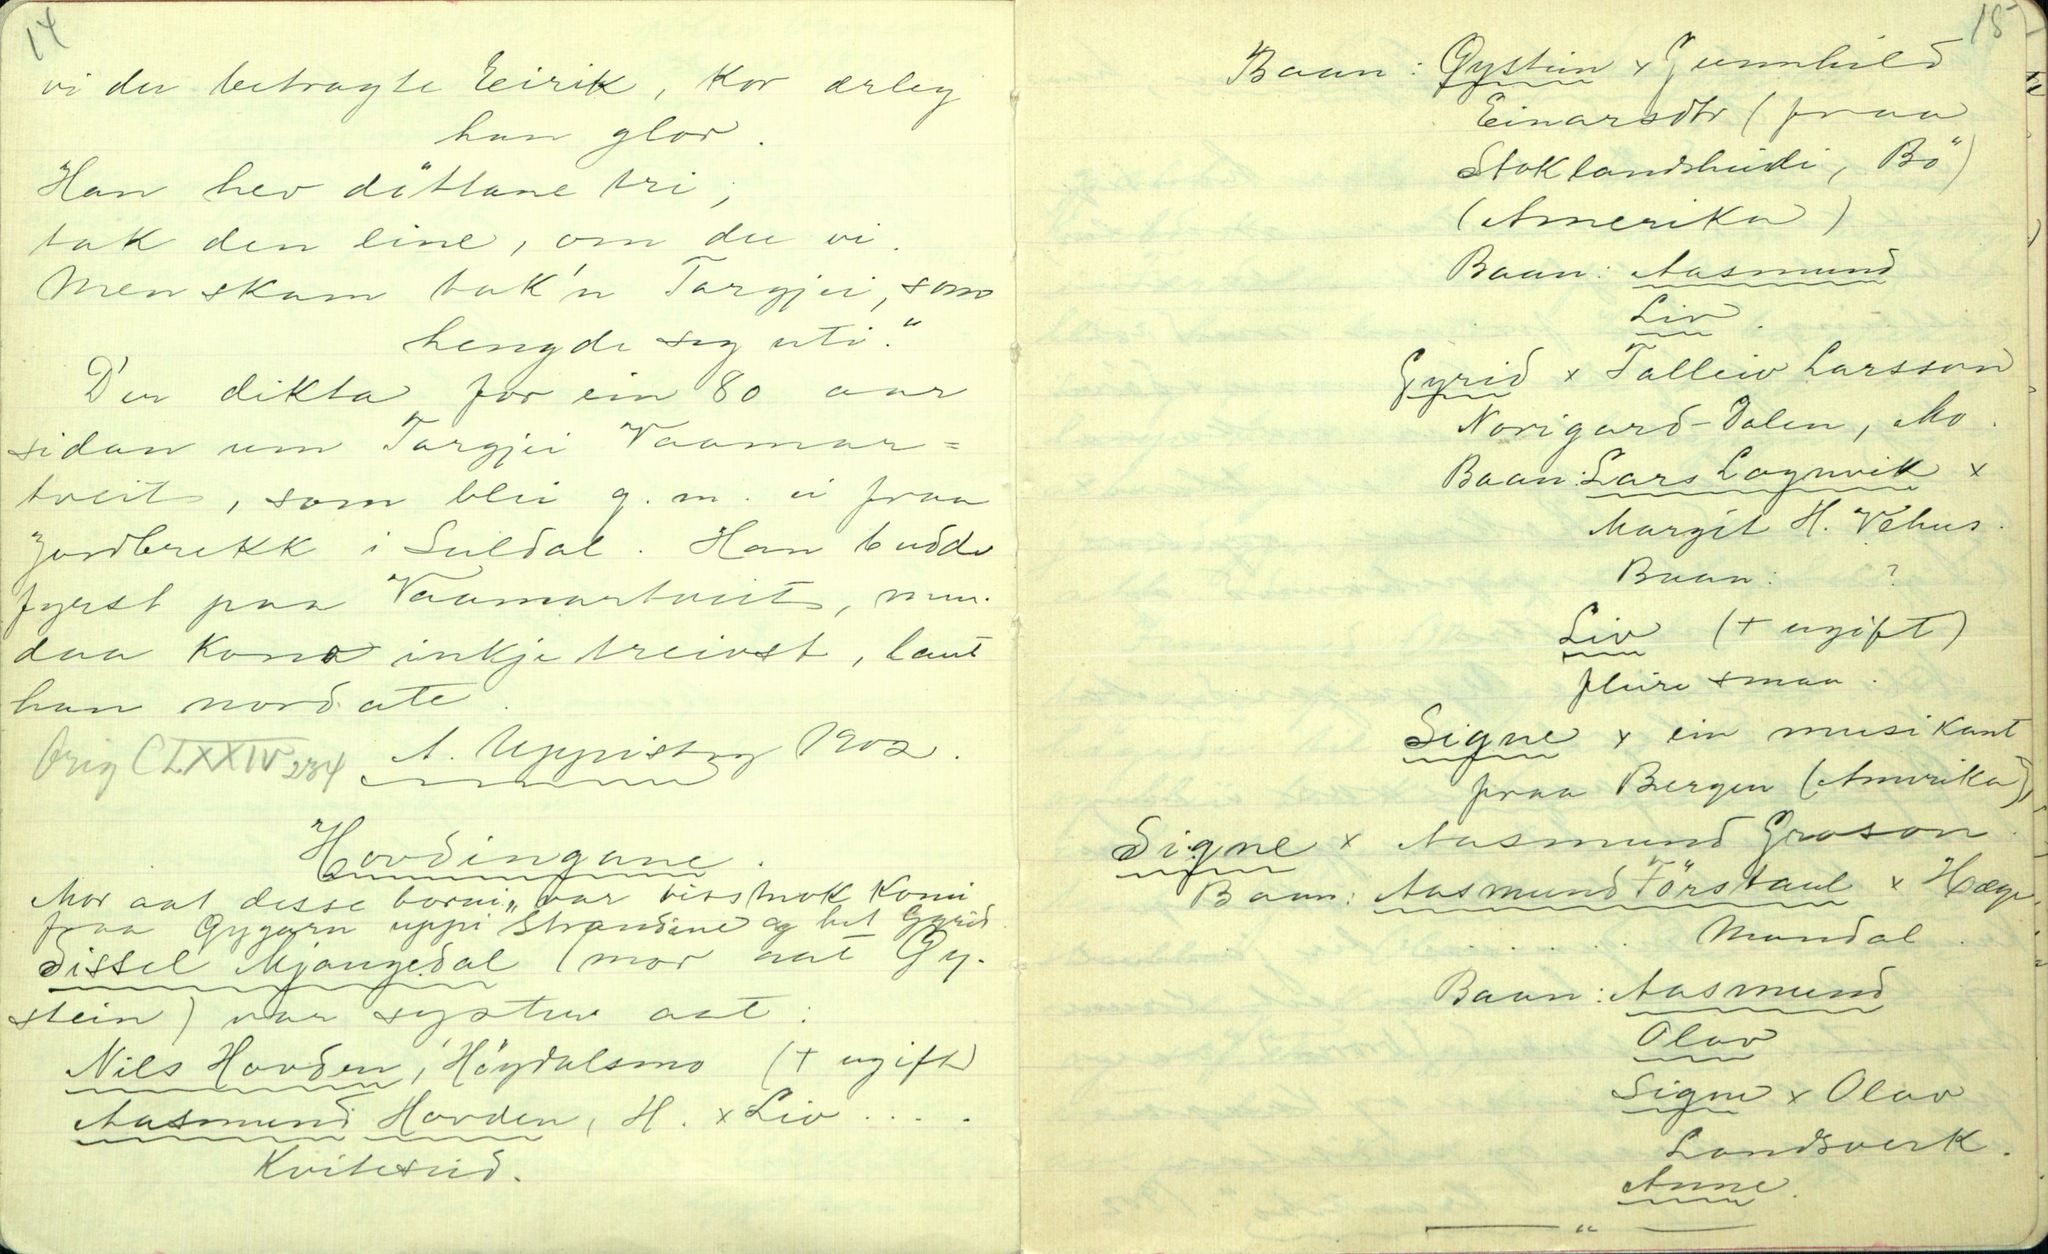 14
vi du betragte Eirik, kor ærleg
han glor.
Han hev döttane tri,
tak den eine, om du vi.
Men skam tak'n Targjei, som
hengde seg uti."
D'er dikta for ein 80 aar
sidan um Targjei Vaamar=
tveit, som blei g. m. ei fraa
Jordbrekk i Suldal. Han budde
fyrst paa Vaamartveit, men
daa Kona inkje treivst, laut
han nord ate.
Orig CLXXIV 234 A. Uppistog 1902.
Hovdingane.
Mor aat desse borni, var visstnok Komi
fraa Gygarn uppi Strandine og het Gyrid
Sissel Mjaugedal (mor aat Gy-
stein) var syster aat:
Nils Hovden, Höydalsmo (+ ugift)
Aasmund Hovden, H. x Liv ....
Kviteseid.
15
Baan: Øystein x Gunnhild
Einarsdtr (fraa
Stoklandsheidi, Bö)
(Amerika)
Baan: Aasmund
Liv.
Gyrid x Talleiv Larsson
Norigard-Dalen, Mo.
Baan: Lars Lognvik x
Margit H. Vehus.
Baan: ?
Liv (+ ugift)
fleire smaa.
Signe x ein musikant
fraa Bergen (Amerika)
Signe x Aasmund Groson.
Baan: Aasmund Förstaul x Hæge
..... Mandal.
Baan: Aasmund
Olav
Signe x Olav
Landsverk.
Anne.
"